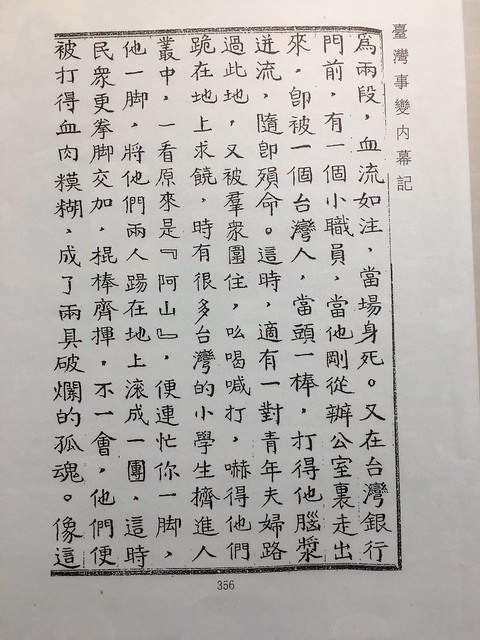 臺灣事變內幕記
爲兩段，血流如注，當場身死。又在台灣銀行
門前，有一個小職員，當他剛從辦公室裏走出
來，卽被一個台灣人，當頭一棒，打得他腦漿
迸流，隨卽殞命。這時，適有一對青年夫婦路
過此地，又被羣衆圍住，吆喝喊打，嚇得他們
跪在地上求饒，時有很多台灣的小學生擠進人
叢中，一看原來是『阿山』，便連忙你一脚，
他一脚，將他們兩人踢在地上滾成一團，這時
民衆更拳脚交加，棍棒齊揮，不一會，他們便
被打得血肉糢糊，成了兩具破爛的孤魂。像這
356